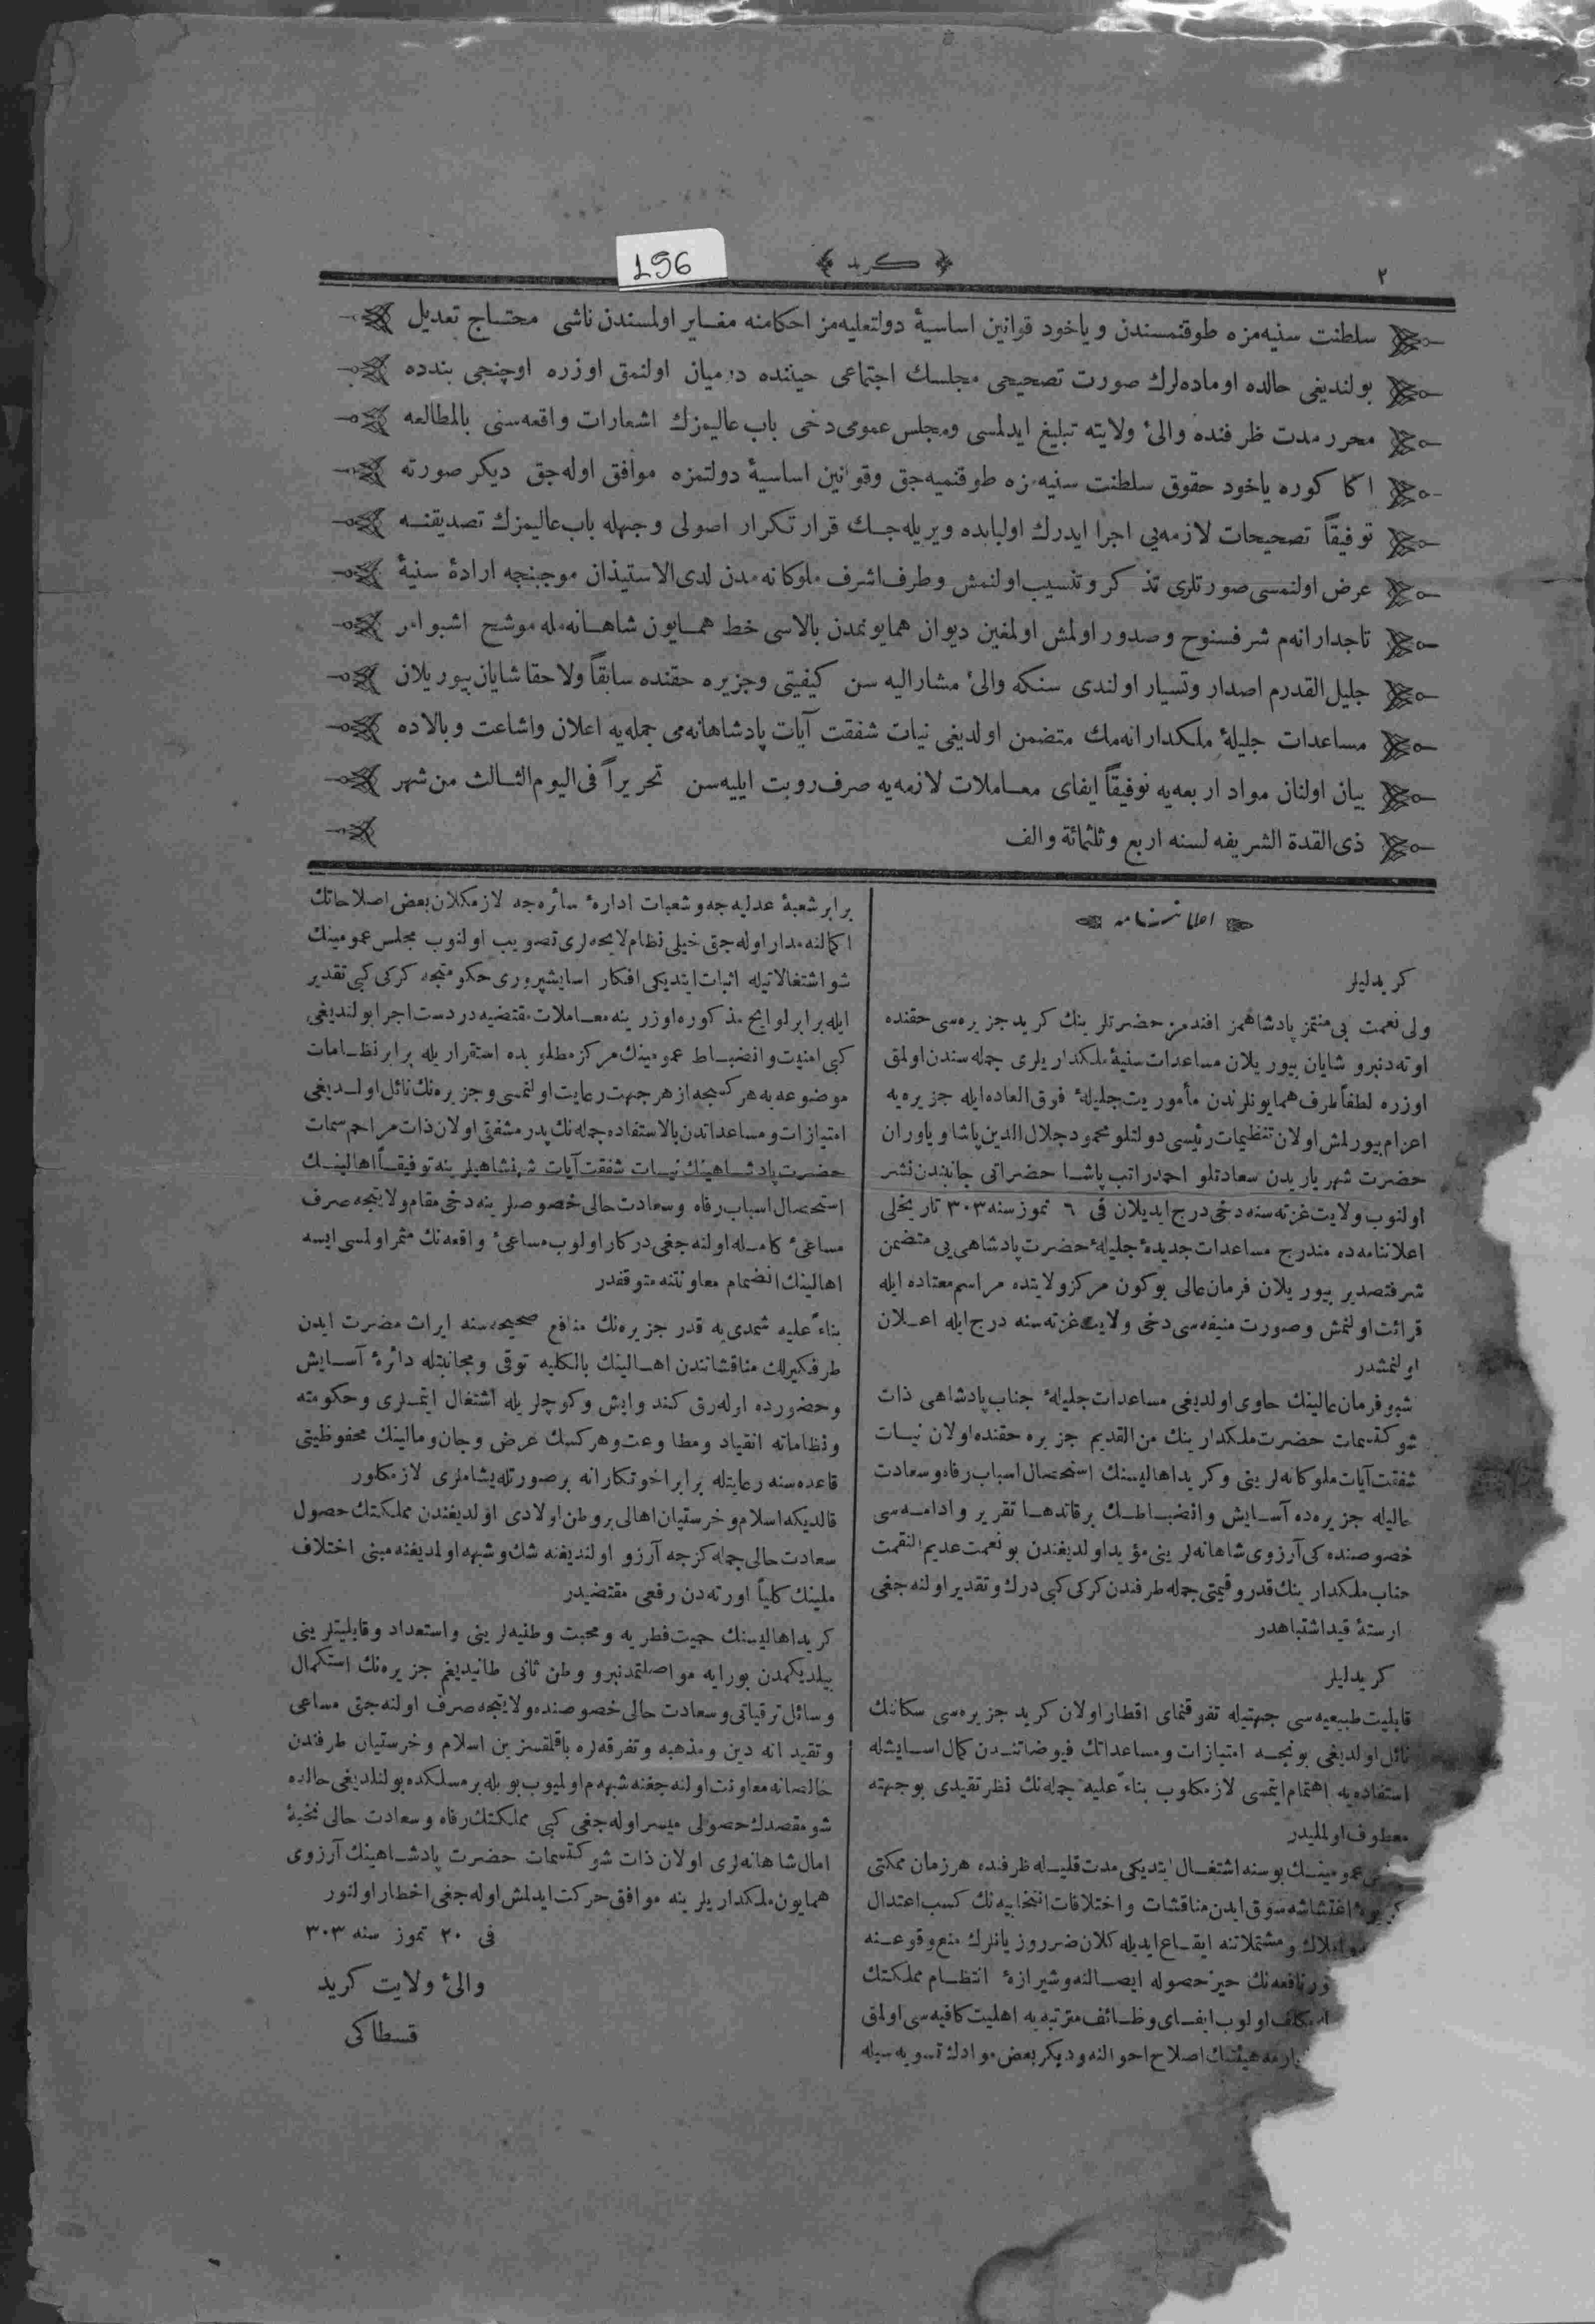 ٢
كريد
196
سلطنت سنيه‌مزه طوقنمسندن وياخود قوانين اساسيۀ دولتعليه‌مز احكامنه مغاير اولمسندن ناشى محتاج تعديل
بولنديغى حالده اوماده‌لرك صورت تصحيحى مجلسك اجتماعى حيننده درميان اولنمق اوزره اوچنجى بندده
محرر مدت ظرفنده والئ ولايته تبليغ ايدلمسى ومجلس عمومى‌دخى باب عاليمزك اشعارات واقعه‌سنى بالمطالعه
اكا كوره ياخود حقوق سلطنت سنيه‌مزه طوقنميه‌جق وقوانين اساسيۀ دولتمزه موافق اوله‌جق ديكر صورته
توفيقاً تصحيحات لازمه‌يى اجرا ايدرك اولبابده ويريله‌جك قرار تكرار اصولى وجهله باب‌عاليمزك تصديقنه
عرض اولنمسى صورتلرى تذكر وتنسيب اولنمش وطرف‌اشرف ملوكانه‌مدن لدى‌الاستيذان موجبنجه ارادۀ سنيۀ
تاجدارانه‌م شرفسنوح وصدور اولمش اولمغين ديوان همايونمدن بالاسى خط همايون شاهانه‌مله موشح اشبو امر
جليل‌القدرم اصدار وتسيار اولندى سنكه والئ مشاراليه سن كيفيتى وجزيره حقنده سابقاً ولاحقا شايان بيوريلان
مساعدات جليلۀ ملكدارانه‌مك متضمن اولديغى نيات شفقت آيات پادشاهانه‌مى جمله‌يه اعلان واشاعت وبالاده
بيان اولنان مواد اربعه‌يه توفيقاً ايفاى معاملات لازمه‌يه صرف‌رويت ايليه‌سن تحريراً فى‌اليوم‌الثالث من‌شهر
ذى‌القدة الشريفه لسنه اربع وثلثمائة والف
اعلاننامه
كريدليلر
ولى نعمت بى‌منتمز پادشاهمز افندمز حضرتلرينك كريد جزيره‌سى حقنده
اوته‌دنبرو شايان بيوريلان مساعدات سنيۀ ملكداريلرى جمله‌سندن اولمق
اوزره لطفاً طرف همايونلرندن مأموريت جليلۀ فوق‌العاده ايله جزيره‌يه
اعزام بيورلمش اولان تنظيمات رئيسى دولتلو محمود جلال‌الدين پاشا وياوران
حضرت شهرياريدن سعادتلو احمد راتب پاشا حضراتى جانبندن نشر
اولنوب ولايت غزته‌سنه دخى درج ايديلان فى ٦ تموز سنه ٣٠٣ تاريخلى
اعلاننامه‌ده مندرج مساعدات جديدۀ جليلۀ حضرت پادشاهى‌يى متضمن
شرفتصدير بيوريلان فرمان عالى بوكون مركز ولايتده مراسم معتاده ايله
قرائت اولنمش وصورت منيفه‌سى دخى ولايت غزته‌سنه درج ايله اعلان
اولنمشدر
شبو فرمان عالينك حاوى اولديغى مساعدات جليلۀ جناب پادشاهى ذات
شوكتسمات حضرت ملكدارينك من‌القديم جزيره حقنده اولان نيات
شفقت آيات ملوكانه‌لرينى وكريد اهاليسنك استحصال اسباب رفاه وسعادت
حاليله جزيره‌ده آسايش وانضباطك برقاتدها تقرير وادامه‌سى
خصوصنده‌كى آرزوى شاهانه‌لرينى مؤيد اولديغندن بو نعمت عديم‌النقمت
جناب ملكدارينك قدر وقيمتى جمله طرفندن كركى كبى درك وتقدير اولنه‌جغى
ارستۀ قيد اشتباهدر
كريدليلر
قابليت طبيعيه‌سى جهتيله تفوقنماى اقطار اولان كريد جزيره‌سى سكاننك
نائل اولديغى بونجه امتيازات ومساعداتك فيوضاتندن كمال اسايشله
استفاده‌يه اهتمام ايتمسى لازمكلوب بناءً عليه جمله‌نك نظر تقيدى بوجهته
معطوف اولمليدر
عمومينك بوسنه اشتغال ايتديكى مدت قليله ظرفنده هر زمان مملكتى
اغتشاشه سوق ايدن مناقشات واختلافات انتخابيه‌نك كسب اعتدال
املاك ومشتملاتنه ايقاع ايديله‌كلان ضرر وزيانلرك منع وقوعنه
نافعه‌نك حيز حصوله ايصالنه وشيرازۀ انتظام مملكتك
مكلف اولوب ايفاى وظائف مترتبه‌يه اهليت كافيه‌سى اولمق
هيئتنك اصلاح احوالنه وديكر بعض موادك تسويه‌سيله
برابر شعبۀ عدليه‌جه وشعبات ادارۀ سائره‌جه لازمكلان بعض اصلاحاتك
اكمالنه مدار اوله‌جق خيلى نظام لايحه‌لرى تصويب اولنوب مجلس عمومينك
شو اشتغالاتيله اثبات ايتديكى افكار اسايشپرورى حكومتجه كركى كبى تقدير
ايله برابر لوايح مذكوره اوزرينه معاملات مقتضيه دردست اجرا بولنديغى
كبى امنيت وانضباط عمومينك مركز مطلوبده استقراريله برابر نظامات
موضوعه‌يه هر كسجه از هر جهت رعايت اولنمسى وجزيره‌نك نائل اولديغى
امتيازات ومساعداتدن بالاستفاده جمله‌نك پدر مشفقى اولان ذات مراحم سمات
حضرت پادشاهينك نيات شفقت آيات شهنشاهيلرينه توفيقاً اهالينك
استحصال اسباب رفاه وسعادت حالى خصوصلرينه دخى مقام ولايتجه صرف
مساعئ كامله اولنه‌جغى دركار اولوب مساعئ واقعه‌نك مثمر اولمسى ايسه
اهالينك انضمام معاونتنه متوقفدر
بناءً عليه شمدى‌يه قدر جزيره‌نك منافع صحيحه‌سنه ايراث مضرت ايدن
طرفكيرلك مناقشاتندن اهالينك بالكليه توقى ومجانبتله دائرۀ آسايش
وحضورده اوله‌رق كند وايش وكوچلريله اشتغال ايتملرى وحكومته
ونظاماته انقياد ومطاوعت وهركسك عرض وجان ومالينك محفوظيتى
قاعده‌سنه رعايتله برابر اخوتكارانه برصورتله يشاملرى لازمكلور
قالديكه اسلام وخرستيان اهالى بروطن اولادى اولديغندن مملكتك حصول
سعادت حالى جمله‌كزجه آرزو اولنديغنه شك وشبهه اولمديغنه مبنى اختلاف
ملينك كلياً اورته‌دن رفعى مقتضيدر
كريد اهاليسنك حميت فطريه ومحبت وطنيه‌لرينى واستعداد وقابليتلرينى
بيلديكمدن بورايه مواصلتمدنبرو وطن ثانى طانيديغم جزيره‌نك استكمال
وسائل ترقياتى وسعادت حالى خصوصنده ولايتجه صرف اولنه‌جق مساعى
وتقيداته دين ومذهبه وتفرقه‌لره باقلقسزين اسلام وخرستيان طرفندن
خالصانه معاونت اولنه‌جغنه شبهه‌م اولميوب بويله برمسلكده بولنلديغى حالده
شو مقصدك حصولى ميسر اوله‌جغى كبى مملكتك رفاه وسعادت حالى نخبۀ
امال شاهانه‌لرى اولان ذات شوكتسمات حضرت پادشاهينك آرزوى
همايون ملكداريلرينه موافق حركت ايدلمش اوله‌جغى اخطار اولنور
فى ٢٠ تموز سنه ٣٠٣
والئ ولايت كريد
قسطاكى